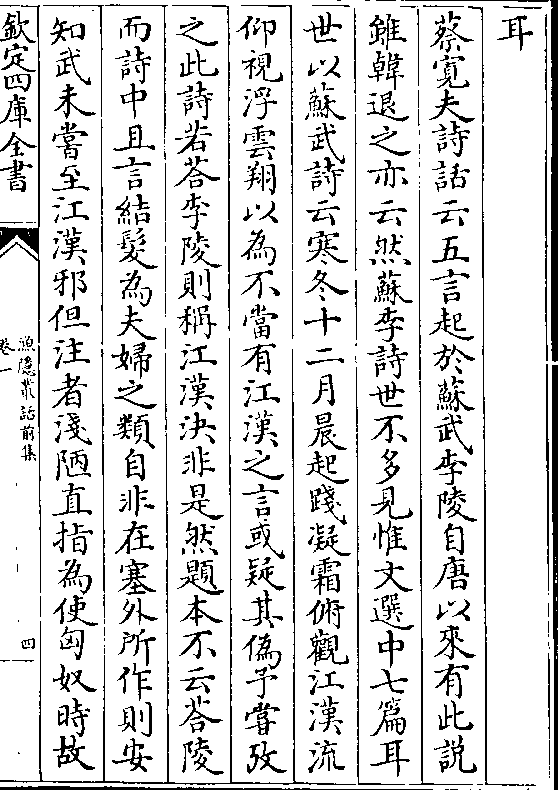 耳
蔡寛夫詩話云五言起於蘇武李陵自唐以來有此説
雖韓退之亦云然蘇李詩世不多見惟文選中七篇耳
世以蘇武詩云寒冬十二月晨起踐凝霜俯觀江漢流
仰視浮雲翔以為不當有江漢之言或疑其偽予嘗攷
之此詩若荅李陵則稱江漢決非是然題本不云荅陵
而詩中且言結髮為夫婦之類自非在塞外所作則安
知武未嘗至江漢邪但注者淺陋直指為使匈奴時故
欽定四庫全書
漁隱叢話前集
卷一
四